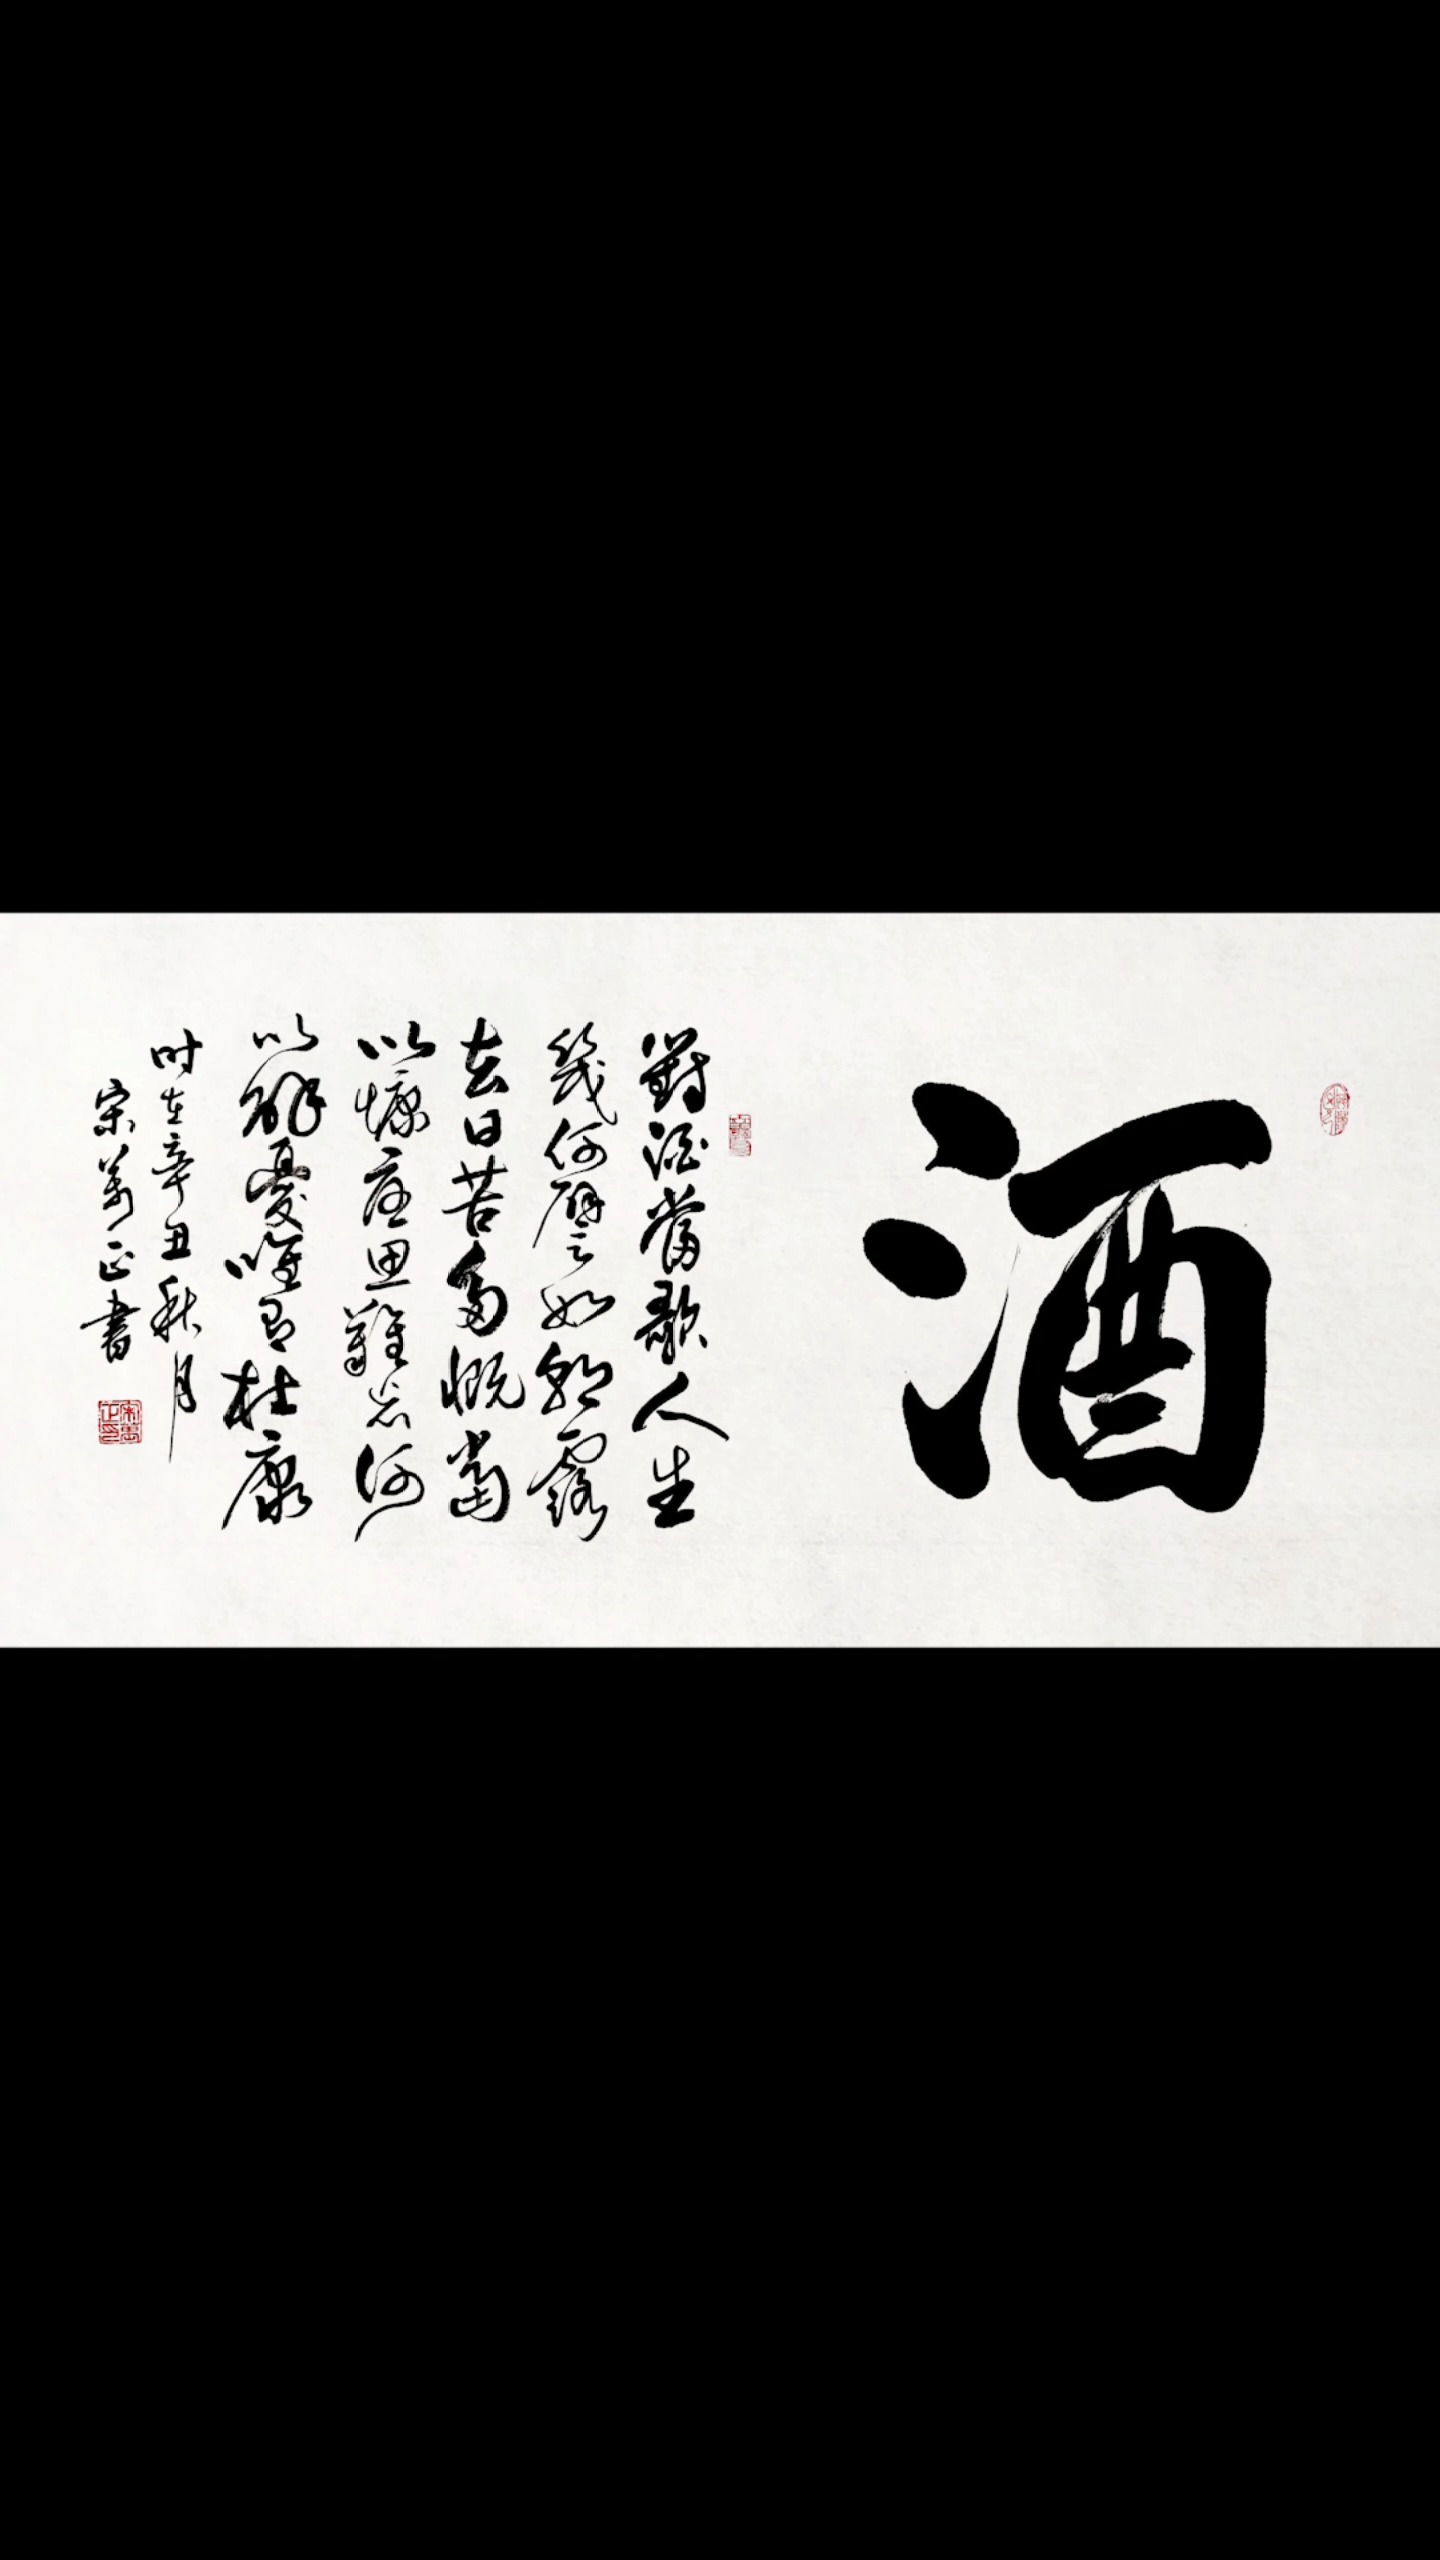 酒
對酒當歌人生
幾何譬如朝露
去日苦多慨當
以慷憂思難忘何
以解憂唯有杜康
时在辛丑秋月
宋萬正書